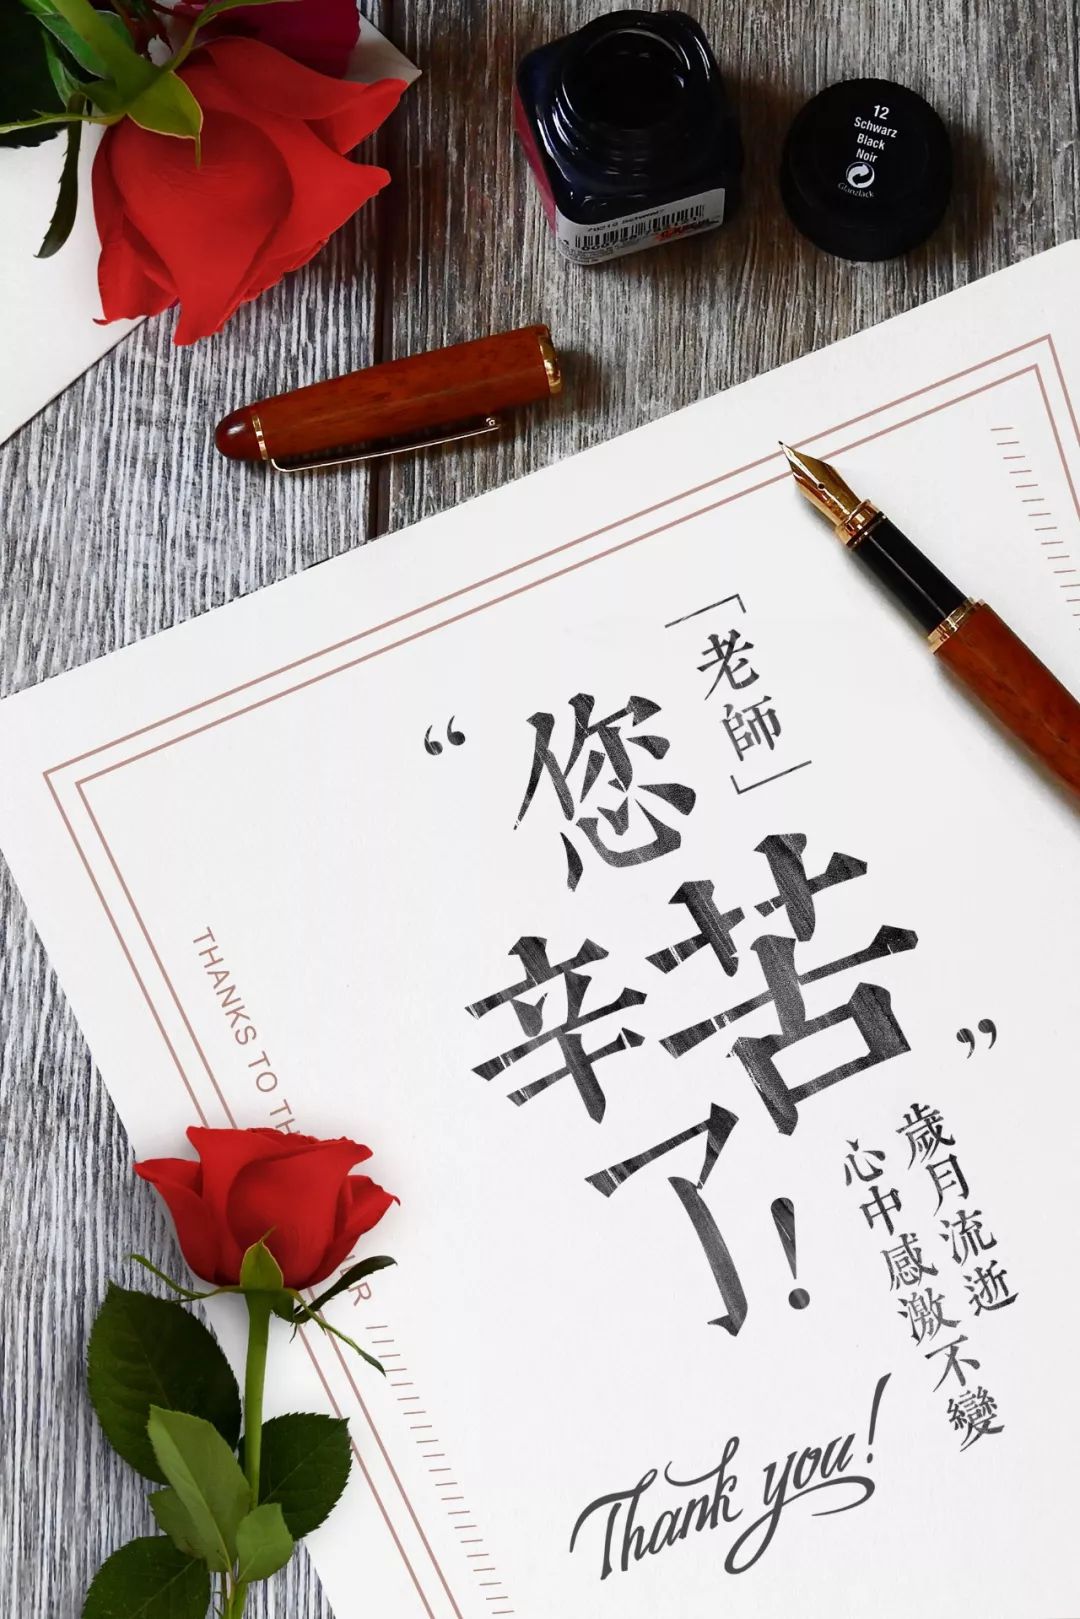 12
Schwarz
Black
Noir
「老師」
“您
辛苦
了！”
歲月流逝
心中感激不變
Thank you!
THANKS TO TH